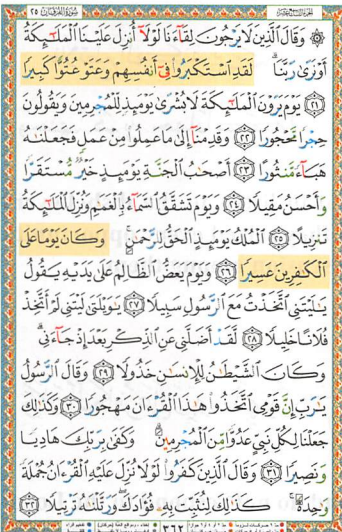 سورة الفرقان ٢٥
۞ وَقَالَ ٱلَّذِينَ لَا يَرْجُونَ لِقَآءَنَا لَوْلَآ أُنزِلَ عَلَيْنَا ٱلْمَلَٰٓئِكَةُ
أَوْ نَرَىٰ رَبَّنَا ۗ لَقَدِ ٱسْتَكْبَرُوا۟ فِىٓ أَنفُسِهِمْ وَعَتَوْ عُتُوًّا كَبِيرًا
٢١ يَوْمَ يَرَوْنَ ٱلْمَلَٰٓئِكَةَ لَا بُشْرَىٰ يَوْمَئِذٍ لِّلْمُجْرِمِينَ وَيَقُولُونَ
حِجْرًا مَّحْجُورًا ٢٢ وَقَدِمْنَآ إِلَىٰ مَا عَمِلُوا۟ مِنْ عَمَلٍ فَجَعَلْنَٰهُ
هَبَآءً مَّنثُورًا ٢٣ أَصْحَٰبُ ٱلْجَنَّةِ يَوْمَئِذٍ خَيْرٌ مُّسْتَقَرًّا
وَأَحْسَنُ مَقِيلًا ٢٤ وَيَوْمَ تَشَقَّقُ ٱلسَّمَآءُ بِٱلْغَمَٰمِ وَنُزِّلَ ٱلْمَلَٰٓئِكَةُ
تَنزِيلًا ٢٥ ٱلْمُلْكُ يَوْمَئِذٍ ٱلْحَقُّ لِلرَّحْمَٰنِ ۚ وَكَانَ يَوْمًا عَلَى
ٱلْكَٰفِرِينَ عَسِيرًا ٢٦ وَيَوْمَ يَعَضُّ ٱلظَّالِمُ عَلَىٰ يَدَيْهِ يَقُولُ
يَٰلَيْتَنِى ٱتَّخَذْتُ مَعَ ٱلرَّسُولِ سَبِيلًا ٢٧ يَٰوَيْلَتَىٰ لَيْتَنِى لَمْ أَتَّخِذْ
فُلَانًا خَلِيلًا ٢٨ لَّقَدْ أَضَلَّنِى عَنِ ٱلذِّكْرِ بَعْدَ إِذْ جَآءَنِى ۗ
وَكَانَ ٱلشَّيْطَٰنُ لِلْإِنسَٰنِ خَذُولًا ٢٩ وَقَالَ ٱلرَّسُولُ
يَٰرَبِّ إِنَّ قَوْمِى ٱتَّخَذُوا۟ هَٰذَا ٱلْقُرْءَانَ مَهْجُورًا ٣٠ وَكَذَٰلِكَ
جَعَلْنَا لِكُلِّ نَبِىٍّ عَدُوًّا مِّنَ ٱلْمُجْرِمِينَ ۗ وَكَفَىٰ بِرَبِّكَ هَادِيًا
وَنَصِيرًا ٣١ وَقَالَ ٱلَّذِينَ كَفَرُوا۟ لَوْلَا نُزِّلَ عَلَيْهِ ٱلْقُرْءَانُ جُمْلَةً
وَٰحِدَةً ۚ كَذَٰلِكَ لِنُثَبِّتَ بِهِۦ فُؤَادَكَ ۖ وَرَتَّلْنَٰهُ تَرْتِيلًا ٣٢
٣٦٢